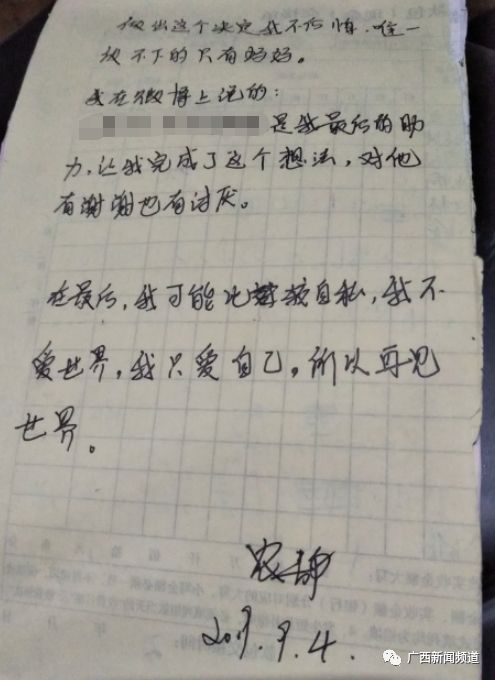 做出这个决定我不后悔,唯一
放不下的只有妈妈。
我在微博上说的:
是我最后的助
力,让我完成了这个想法,对他
有谢谢也有讨厌。
在最后,我可能比较自私,我不
爱世界,我只爱自己。所以再见
世界。
9.4.
广西新闻频道